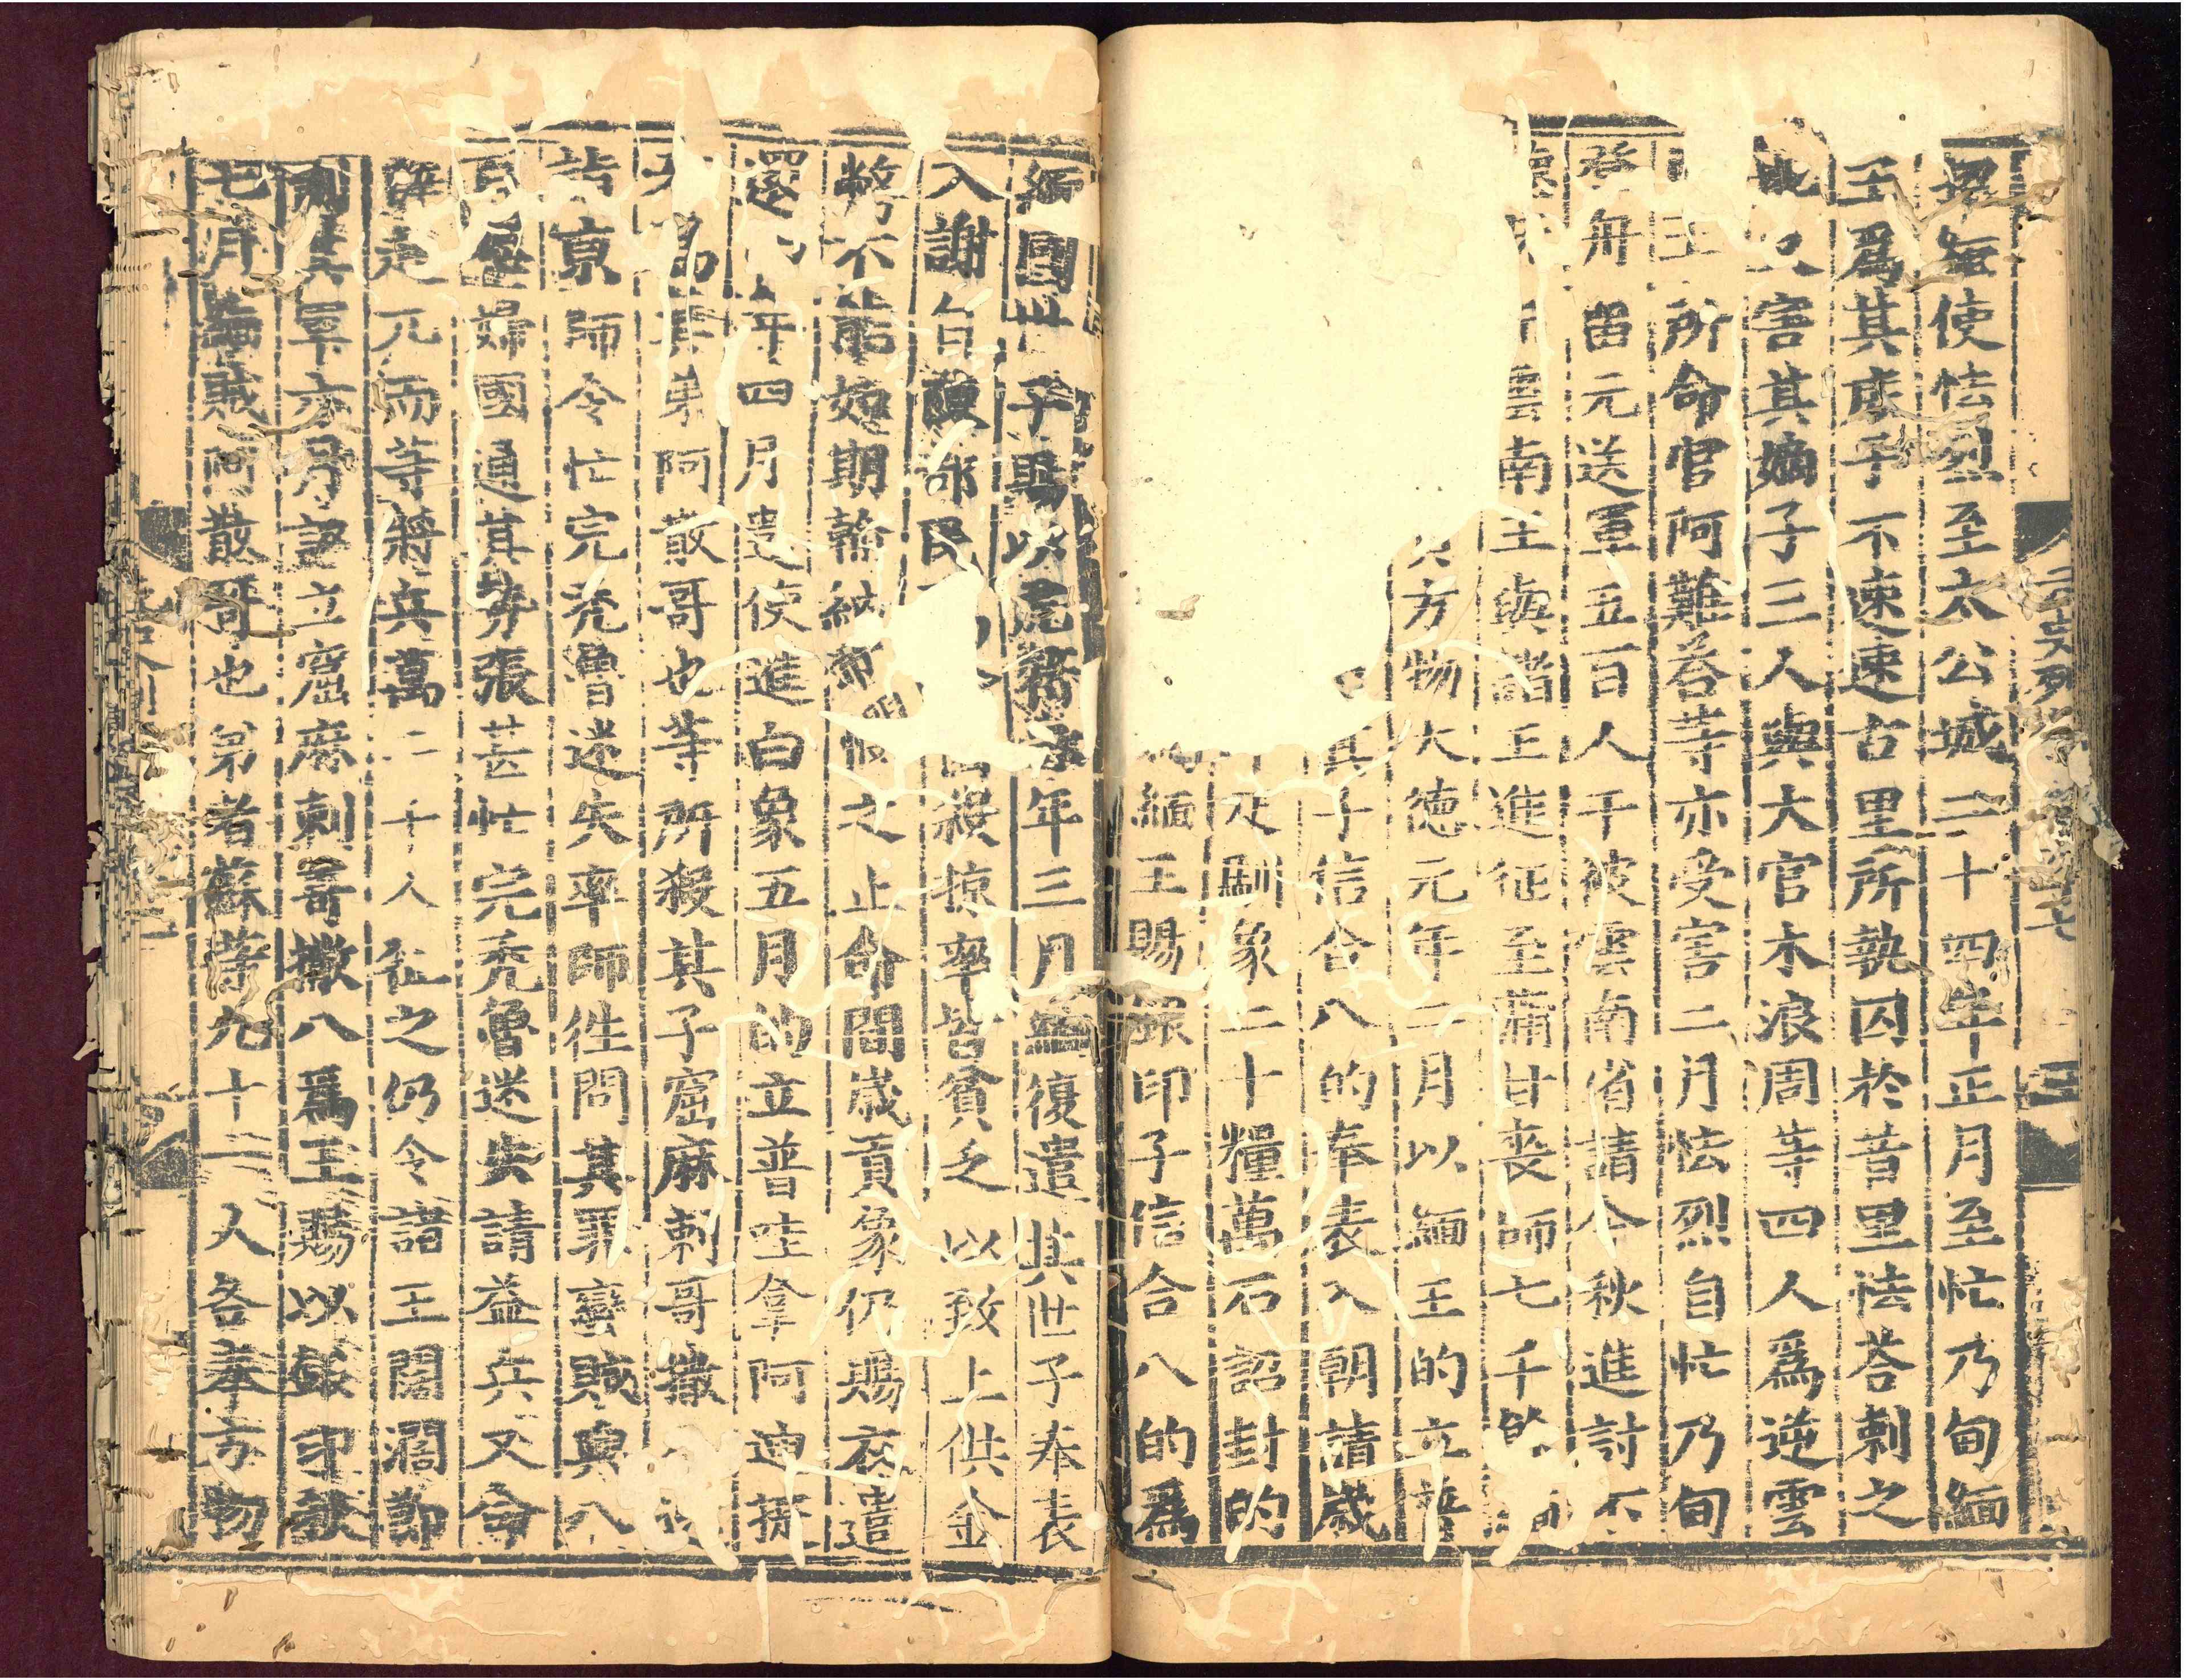 畢緬使怯烈至太公城二十四年正月至忙乃甸緬
王爲其庶子不速速古里所執囚於昔里怯答剌之
地又害其嫡子三人與大官木浪周等四人爲逆雲
王所命官阿難答等亦受害二月怯烈自忙乃甸
登舟留元送軍五百人于彼雲南省請今秋進討不
雲南王與諸王進征至蒲甘喪師七千餘緬
方物大德元年二月以緬王的立普
其子信合八的奉表入朝請歲
及馴象二十糧萬石詔封的
緬王賜銀印子信合八的爲
緬國世子賜以虎符三年三月緬復遣其世子奉表
入謝自陳部民殺掠率皆貧乏以致上供金
幣不能如期輸納帝憫之止命間歲貢象仍賜衣遣
還四年四月遣使進白象五月的立普哇拿阿迪提
爲其弟阿散哥也等所殺其子窟麻剌哥撒
詣京師令忙完禿魯迷失率師往問其罪蠻賊與八
百媳婦國通其勢張甚忙完禿魯迷失請益兵又命
薛超兀而等將兵萬二千人征之仍令諸王闊闊節
制其軍六月詔立窟麻剌哥撒八爲王賜以銀印秋
七月緬賊阿散哥也弟者蘇等九十一人各奉方物
元史列傳卷九十七
三